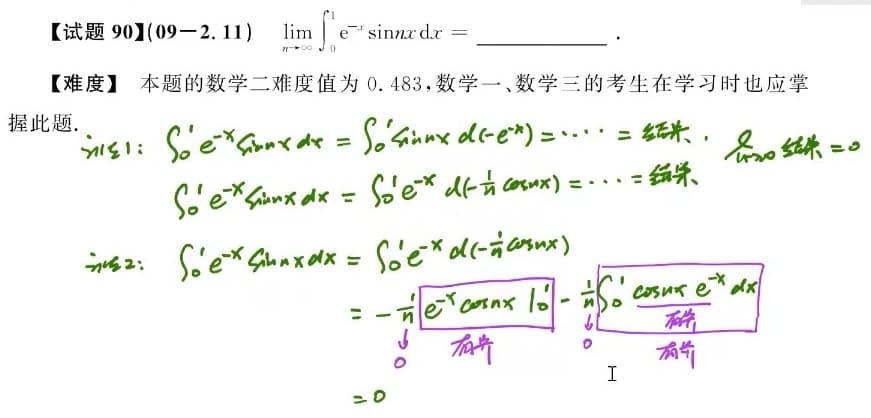 【试题 90】(09—2.11) lim_{n→∞} ∫_0^1 e^{-x} sin nx dx = ________ .
【难度】 本题的数学二难度值为 0.483,数学一、数学三的考生在学习时也应掌
握此题.
方法1: ∫_0^1 e^{-x} sin nx dx = ∫_0^1 sin nx d(-e^{-x}) = ···· = 结果. lim_{n→∞} 结果 = 0
∫_0^1 e^{-x} sin nx dx = ∫_0^1 e^{-x} d(-1/n cos nx) = ···· = 结果.
方法2: ∫_0^1 e^{-x} sin nx dx = ∫_0^1 e^{-x} d(-1/n cos nx)
= -1/n e^{-x} cos nx |_0^1 - 1/n ∫_0^1 cos nx e^{-x} dx
↓ 有界 ↓ 有界
0 0 有界
= 0